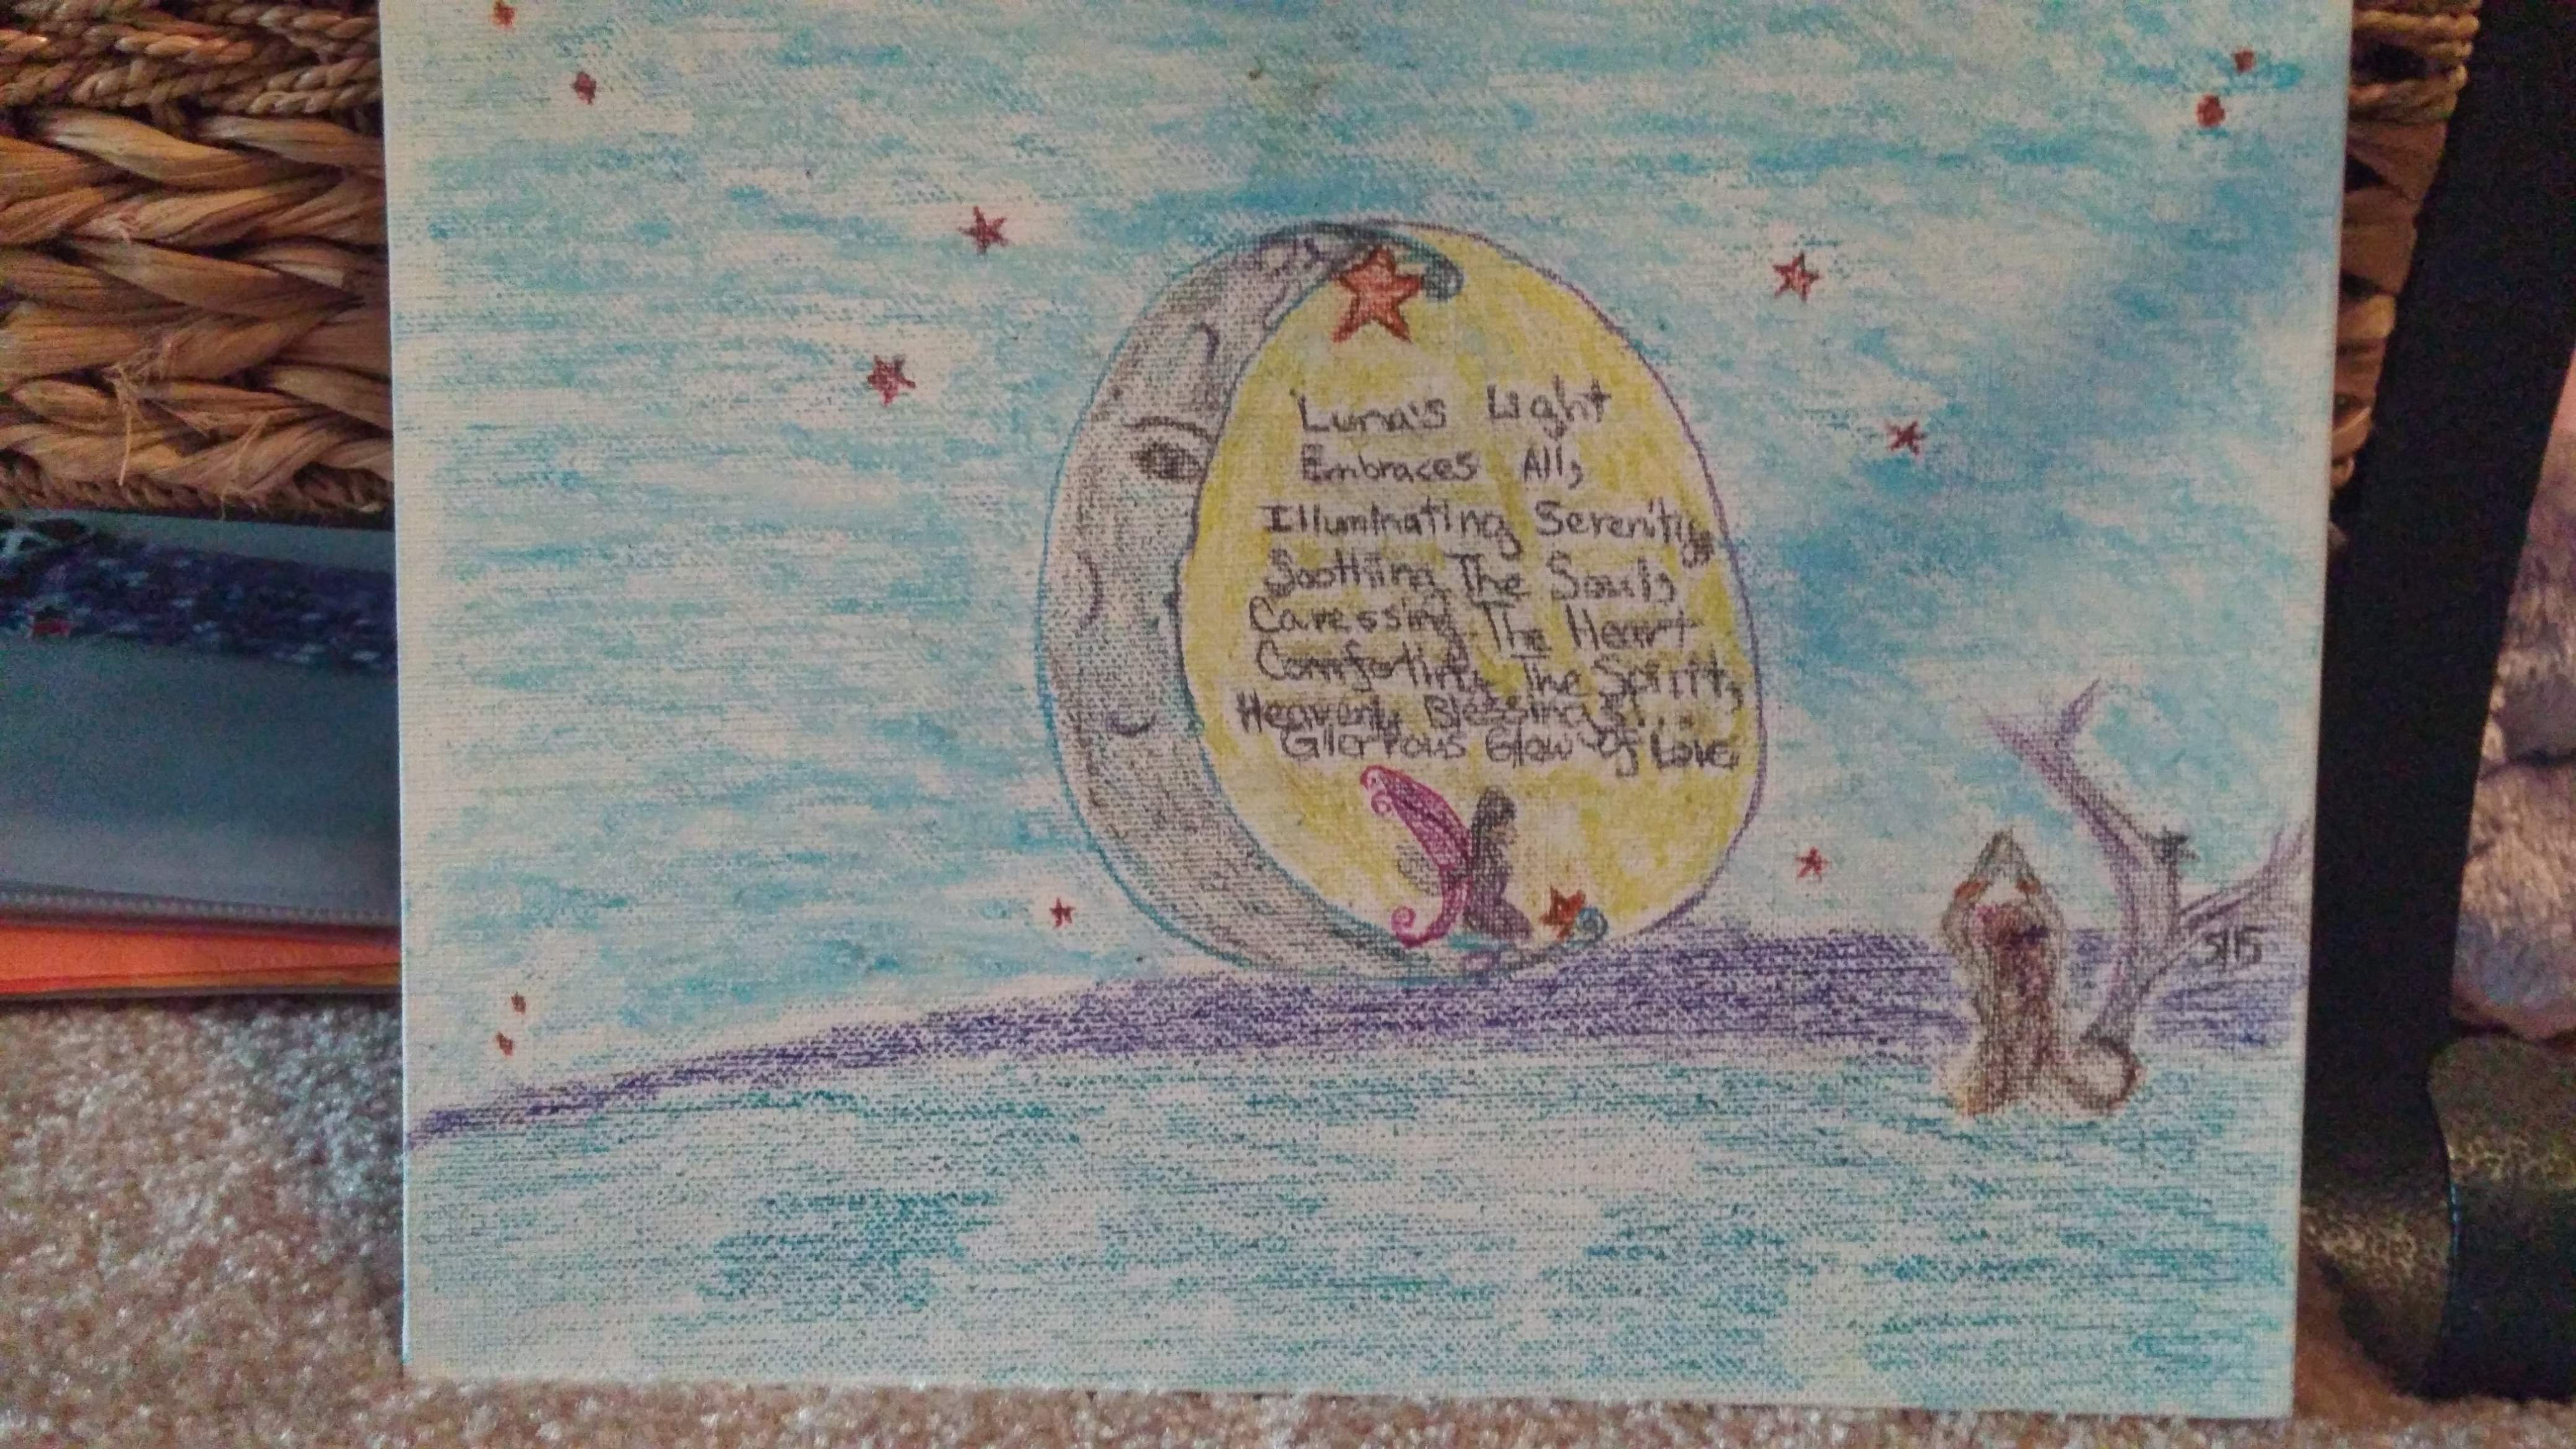 Luna's Light
Embraces All,
Illuminating Serenity,
Soothing The Soul,
Caressing The Heart
Comforting The Spirit,
Heavenly Blessings!...
Glorious Glow of Love